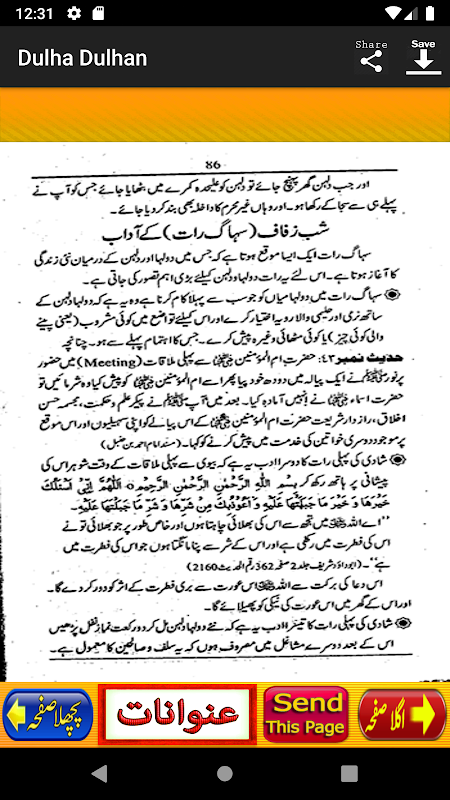 12:31
Dulha Dulhan
Share
Save
86
اور جب دلہن گھر پہنچ جائے تو دلہن کو علیحدہ کمرے میں بٹھایا جائے جس کو آپ نے
پہلے ہی سے سجا کے رکھا ہو۔ اور وہاں غیر محرم کا داخلہ بھی بند کر دیا جائے۔
شب زفاف (سہاگ رات) کے آداب
سہاگ رات ایک ایسا موقع ہوتا ہے کہ جس میں دولہا اور دلہن کے درمیان نئی زندگی
کا آغاز ہوتا ہے۔ اس لئے یہ رات دولہا و دلہن کیلئے بڑی اہم تصور کی جاتی ہے۔
سہاگ رات میں دولہا میاں کو جو سب سے پہلا کام کرنا ہے وہ یہ ہے کہ دولہا دلہن کے
ساتھ نرمی اور حلیمی والا رویہ اختیار کرے اور اس کیلئے تواضع میں کوئی مشروب (یعنی پینے
والی کوئی چیز) یا کوئی مٹھائی وغیرہ پیش کرے۔ جس کا اہتمام پہلے سے ہو۔ چنانچہ
حدیث نمبر ٤٣: حضرت ام المؤمنین سے پہلی ملاقات (Meeting) میں حضور
پرنور ﷺ نے ایک پیالہ میں دودھ خود پیا پھر اسے ام المؤمنین کو پیش کیا وہ شرمائیں تو
حضرت اسماء نے انہیں آمادہ کیا۔ بعد میں آپ ﷺ نے پیکر علم و حکمت، مجسمہ حسن
اخلاق، راز دار شریعت حضرت ام المؤمنین کے اس پیالے کو اپنی سہیلیوں اور اس موقع
پر موجود دوسری خواتین کی خدمت میں پیش کرنے کو کہا۔ (مسند امام احمد بن حنبل)
شادی کی پہلی رات کا دوسرا ادب یہ ہے کہ بیوی سے پہلی ملاقات کے وقت شوہر اس کی
پیشانی پر ہاتھ رکھ کر بِسْمِ اللّٰهِ الرَّحْمٰنِ الرَّحِيْمِ اَللّٰهُمَّ اِنِّيْ اَسْئَلُكَ
خَيْرَهَا وَ خَيْرَ مَا جَبَلْتَهَا عَلَيْهِ وَ اَعُوْذُبِكَ مِنْ شَرِّهَا وَ شَرِّ مَا جَبَلْتَهَا عَلَيْهِ۔
"اے اللہ میں تجھ سے اس کی بھلائی چاہتا ہوں اور خاص طور پر جو بھلائی تو نے
اس کی فطرت میں رکھی ہے اور اس کے شر سے پناہ مانگتا ہوں جو اس کی فطرت میں
ہے"۔ (ابوداؤد شریف جلد 2 صفحہ 362 رقم الحدیث 2160)
اس دعا کی برکت سے اللہ اس عورت سے بری فطرت کے اثر کو دور کر دے گا۔
اور اس کے گھر میں اس عورت کی نیکی کو پھیلائے گا۔
شادی کی پہلی رات کا تیسرا ادب یہ ہے کہ نئے دولہا دلہن مل کر دو رکعت نماز نفل پڑھیں
اس کے بعد دوسرے مشاغل میں مصروف ہوں کہ یہ سلف و صالحین کا معمول ہے۔
پچھلا صفحہ
عنوانات
Send
This Page
اگلا صفحہ